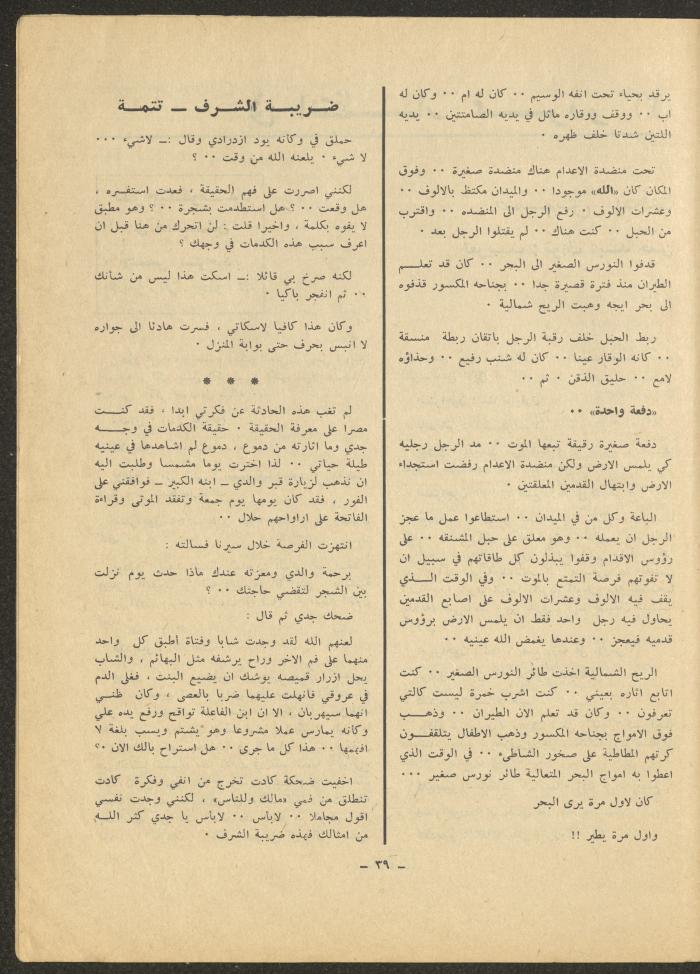 يرقد بحياء تحت انفه الوسيم ٠٠ كان له ام ٠٠ وكان له
اب ٠٠ ووقف ووقاره ماثل في يديه الصامتتين ٠٠ يديه
اللتين شدتا خلف ظهره ٠
تحت منضدة الاعدام هناك منضدة صغيرة ٠٠ وفوق
المكان كان «الله» موجودا ٠٠ والميدان مكتظ بالالوف ٠٠
وعشرات الالوف ٠ رفع الرجل الى المنضده ٠٠ واقترب
من الحبل ٠٠ كنت هناك ٠٠ لم يقتلوا الرجل بعد ٠
قدفوا النورس الصغير الى البحر ٠٠ كان قد تعلـــم
الطيران منذ فترة قصيرة جدا ٠٠ بجناحه المكسور قذفوه
الى بحر ايجه وهبت الريح شمالية ٠
ربط الحبل خلف رقبة الرجل باتقان ربطة منسقة
٠٠ كانه الوقار عينا ٠٠ كان له شنب رفيع ٠٠ وحذاؤه
لامع ٠٠ حليق الذقن ٠ ثم ٠٠
«دفعة واحدة» ٠٠
دفعة صغيرة رقيقة تبعها الموت ٠٠ مد الرجل رجليه
كي يلمس الارض ولكن منضدة الاعدام رفضت استجداء
الارض وابتهال القدمين المعلقتين ٠
الباعة وكل من في الميدان ٠٠ استطاعوا عمل ما عجز
الرجل ان يعمله ٠٠ وهو معلق على حبل المشنقه ٠٠ على
رؤوس الاقدام وقفوا يبذلون كل طاقاتهم في سبيل ان
لا تفوتهم فرصة التمتع بالموت ٠٠ وفي الوقت الــذي
يقف فيه الالوف وعشرات الالوف على اصابع القدمين
يحاول فيه رجل واحد فقط ان يلمس الارض برؤوس
قدميه فيعجز ٠٠ وعندها يغمض الله عينيه ٠٠
الريح الشمالية اخذت طائر النورس الصغير ٠٠ كنت
اتابع اثاره بعيني ٠٠ كنت اشرب خمرة ليست كالتي
تعرفون ٠٠ وكان قد تعلم الان الطيران ٠٠ وذهـــب
فوق الامواج بجناحه المكسور وذهب الاطفال يتلقفــون
كرتهم المطاطية على صخور الشاطىء ٠٠ في الوقت الذي
اعطوا به امواج البحر المتعالية طائر نورس صغير ٠٠٠
كان لاول مرة يرى البحر
واول مرة يطير !!
ضـريبـة الشـرف ــ تتمـة
حملق في وكانه يود ازدرادي وقال :ــ لاشيء ٠٠٠
لا شيء ٠ يلعنه الله من وقت ٠٠ ؟
لكنني اصررت على فهم الحقيقة ، فعدت استفسره ،
هل وقعت ٠٠ ؟ هل استطدمت بشجرة ٠٠ ؟ وهو مطبق
لا يفوه بكلمة ، واخيرا قلت : لن اتحرك من هنا قبل ان
اعرف سبب هذه الكدمات في وجهك ؟
لكنه صرخ بي قائلا :ــ اسكت هذا ليس من شأنك
٠٠ ثم انفجر باكيا ٠
وكان هذا كافيا لاسكاتي ، فسرت هادئا الى جواره
لا انبس بحرف حتى بوابة المنزل ٠
* * *
لم تغب هذه الحادثة عن فكرتي ابدا ، فقد كنــت
مصرا على معرفة الحقيقة ٠ حقيقة الكدمات في وجـــه
جدي وما اثارته من دموع ، دموع لم اشاهدها في عينيه
طيلة حياتي ٠٠ لذا اخترت يوما مشمسا وطلبت اليه
ان نذهب لزيارة قبر والدي ــ ابنه الكبير ــ فوافقني على
الفور ، فقد كان يومها يوم جمعة وتفقد الموتى وقراءة
الفاتحة على ارواحهم حلال ٠٠
انتهزت الفرصة خلال سيرنا فسالته :
برحمة والدي ومعزته عندك ماذا حدث يوم نزلت
بين الشجر لتقضي حاجتك ٠٠ ؟
ضحك جدي ثم قال :
لعنهم الله لقد وجدت شابا وفتاة أطبق كل واحد
منهما على فم الاخر وراح يرشفه مثل البهائم ، والشاب
يحل ازرار قميصه يوشك ان يضيع البنت ، فغلى الدم
في عروقي فانهلت عليهما ضربا بالعصى ، وكان ظنــي
انهما سيهربان ، الا ان ابن الفاعلة تواقح ورفع يده علي
وكانه يمارس عملا مشروعا وهو يشتم ويسب بلغة لا
افهمها ٠٠ هذا كل ما جرى ٠٠ هل استراح بالك الان ٠؟
اخفيت ضحكة كادت تخرج من انفي وفكرة كادت
تنطلق من فمي «مالك وللناس» ، لكنني وجدت نفسي
اقول مجاملا ٠٠ لاباس ٠٠ لاباس يا جدي كثر اللــه
من امثالك فهذه ضريبة الشرف ٠
ــ ٣٩ ــ